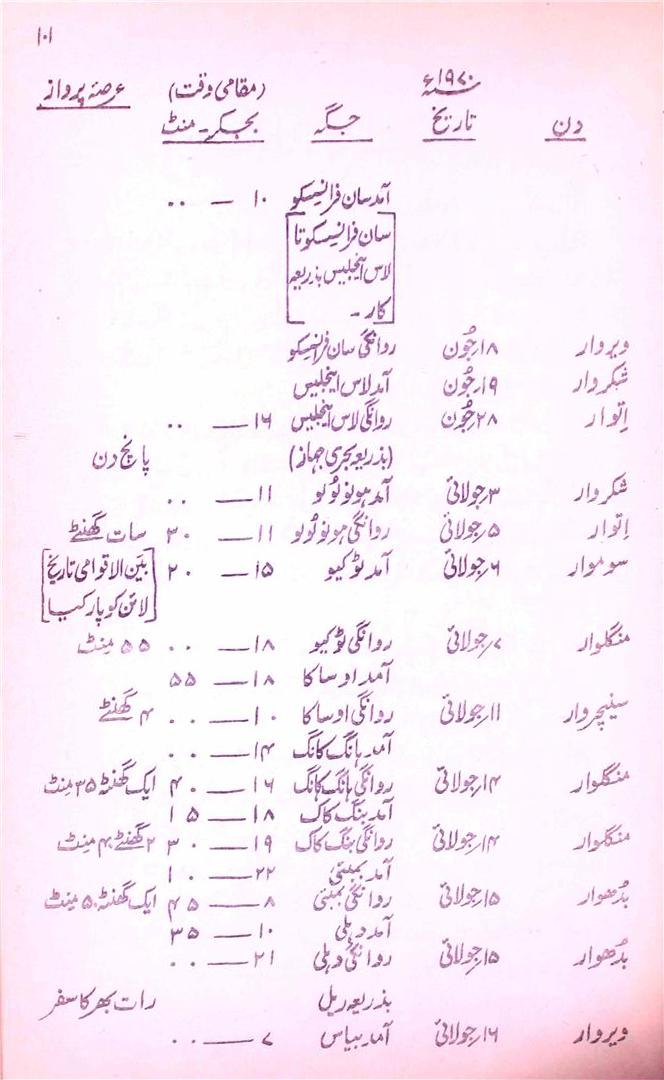 ۱۰۱
۱۹۷۰ء (مقامی وقت) عرصۂ پرواز
دن تاریخ جگہ بجکر۔ منٹ
آمد سان فرانسسکو ۱۰ — ۰۰
[سان فرانسسکو تا
لاس اینجلیس بذریعہ
کار۔]
ویروار ۱۸؍جُون روانگی سان فرانسسکو
شکروار ۱۹؍جُون آمد لاس اینجلیس
اِتوار ۲۸؍جُون روانگی لاس اینجلیس ۱۶ — ۰۰
(بذریعہ بحری جہاز) پانچ دن
شکروار ۳؍جولائی آمد ہونولُولو ۱۱ — ۰۰
اِتوار ۵؍جولائی روانگی ہونولُولو ۱۱ — ۳۰ سات گھنٹے
سوموار ۶؍جولائی آمد ٹوکیو ۱۵ — ۲۰ [بین الاقوامی تاریخ
لائن کو پار کیا]
منگلوار ۷؍جولائی روانگی ٹوکیو ۱۸ — ۰۰ ۵۵ مِنٹ
آمد اوساکا ۱۸ — ۵۵
سنیچروار ۱۱؍جولائی روانگی اوساکا ۱۰ — ۰۰ ۴ گھنٹے
آمد ہانگ کانگ ۱۴ — ۰۰
منگلوار ۱۴؍جولائی روانگی ہانگ کانگ ۱۶ — ۴۰ ایک گھنٹہ ۳۵ مِنٹ
آمد بنگ کاک ۱۸ — ۱۵
منگلوار ۱۴؍جولائی روانگی بنگ کاک ۱۹ — ۳۰ ۲ گھنٹے ۴۰ منٹ
آمد بمبئی ۲۲ — ۱۰
بُدھوار ۱۵؍جولائی روانگی بمبئی ۸ — ۴۵ ایک گھنٹہ ۵۰ مِنٹ
آمد دہلی ۱۰ — ۳۵
بُدھوار ۱۵؍جولائی روانگی دہلی ۲۱ — ۰۰
بذریعہ ریل رات بھر کا سفر
ویروار ۱۶؍جولائی آمد بیاس ۷ — ۰۰